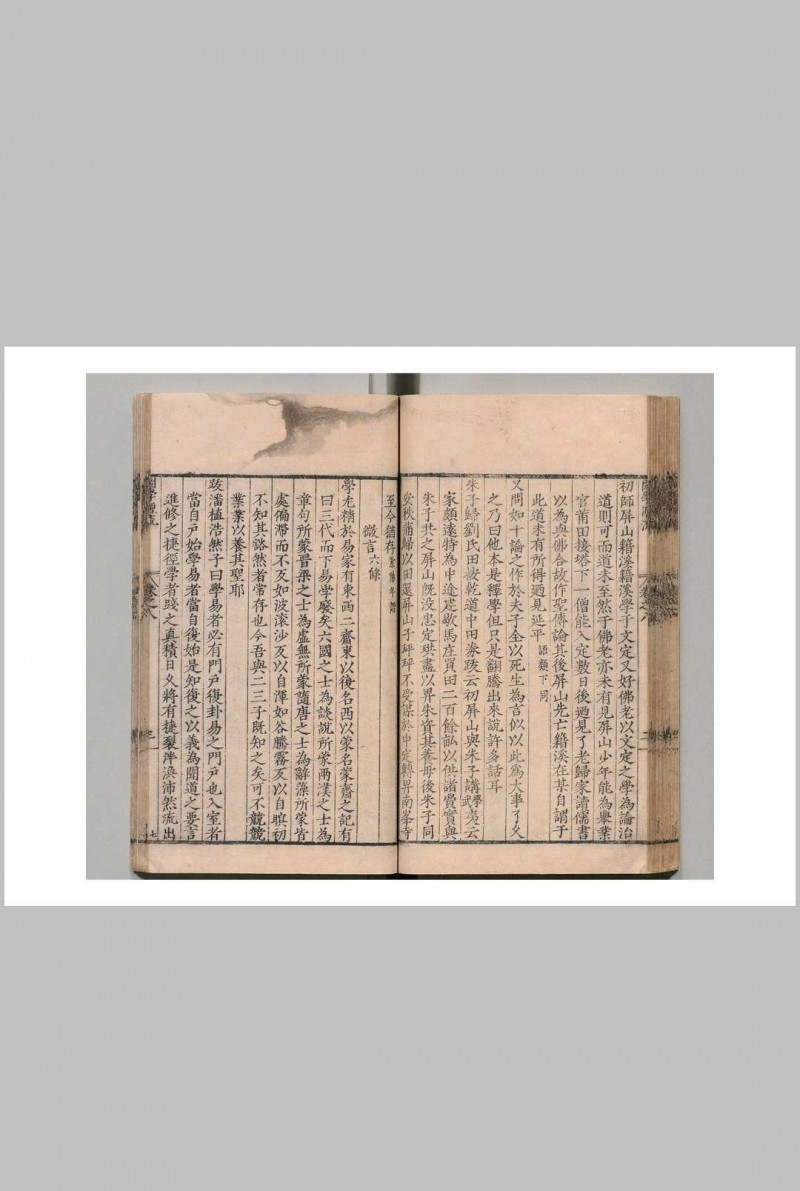 初師屏山籍溪籍溪學于文定又好佛老以文定之學為論治
道則可而道未至然于佛老亦未有見屏山少年能為舉業
官莆田接塔下一僧能入定數日後廼見了老歸家讀儒書
以為與佛合故作聖傳論其後屏山先亡籍溪在某自謂于
此道未有所得廼見延平 語類下同
又問如十論之作於夫子全以死生為言似以此爲大事了久
之乃曰他本是釋學但只是翻騰出來說許多話耳
朱子歸劉氏田坡乾道中田券跋云初屏山與朱子講學武夷云
家頗遠特為中途建歇馬庄買田二百餘畝以供諸費實與
朱子共之屏山既沒忠定珙盡以畀朱資其養母後朱子同
安秩滿歸以田還屏山子坪坪不受謀於忠定轉畀南峯寺
至今猶存 紫陽年譜
微言六條
學尤精於易家有東西二齋東以復名西以蒙名蒙齋之記有
曰三代而下易學廢矣六國之士為談說所蒙兩漢之士為
章句所蒙晉梁之士為虛無所蒙隨唐之士為辭藻所蒙皆
處偏滯而不反如波滾沙反以自渾如谷騰霧反以自暝初
不知其谿然者常存也今吾與二三子既知之矣可不兢兢
業業以養其聖耶
跋潘植浩然子曰學易者必有門戶復卦易之門戶也入室者
當自戶始學易者當自復始是知復之以義為聞道之要言
進修之捷徑學者踐之真積日久將有捷裂泮渙沛然流出
卷之八